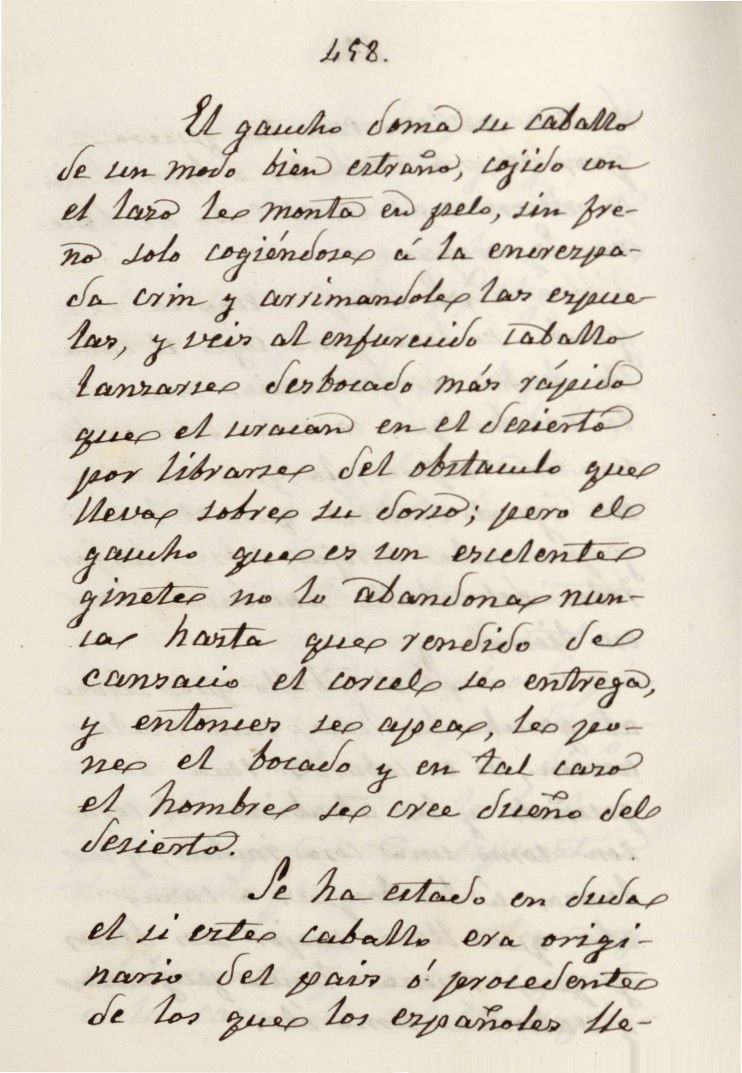 458.
El gaucho doma su caballo
de un modo bien estraño, cojido con
el lazo le monta en pelo, sin fre-
no solo cogiéndose á la encrespa-
da crin y arrimandole las espue-
las, y veis al enfurecido caballo
lanzarse desbocado más rápido
que el uracan en el desierto
por librarse del obstaculo que
lleva sobre su dorso; pero el
gaucho que es un escelente
ginete no lo abandona nun-
ca hasta que rendido de
cansacio el corcel se entrega,
y entonces se apea, le po-
ne el bocado y en tal caso
el hombre se cree dueño del
desierto.
Se ha estado en duda
el si este caballo era origi-
nario del pais ó procedente
de los que los españoles lle-